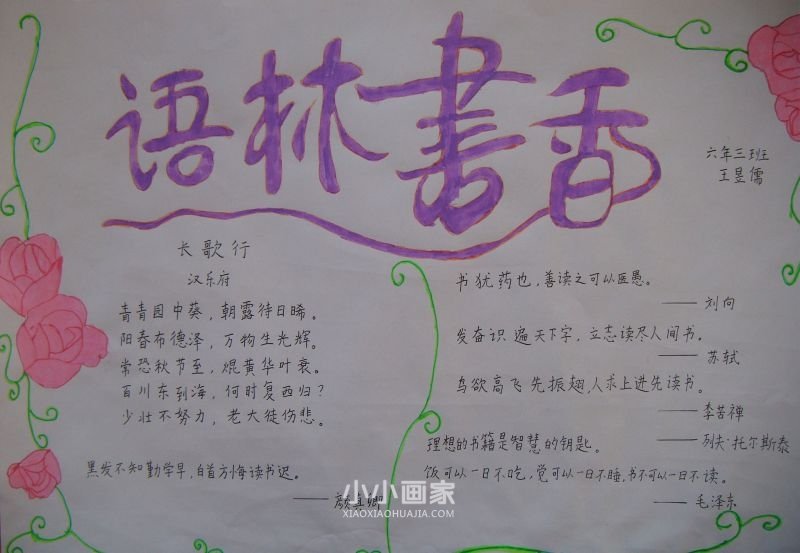 语林書香
六年三班
王昱儒
长歌行
汉乐府
青青园中葵，朝露待日晞。
阳春布德泽，万物生光辉。
常恐秋节至，焜黄华叶衰。
百川东到海，何时复西归？
少壮不努力，老大徒伤悲。
黑发不知勤学早，白首方悔读书迟。
——颜真卿
书犹药也，善读之可以医愚。
——刘向
发奋识遍天下字，立志读尽人间书。
——苏轼
鸟欲高飞先振翅，人求上进先读书。
——李苦禅
理想的书籍是智慧的钥匙。
——列夫·托尔斯泰
饭可以一日不吃，觉可以一日不睡，书不可以一日不读。
——毛泽东
小小画家
XIAOXIAOHUAJIA.COM